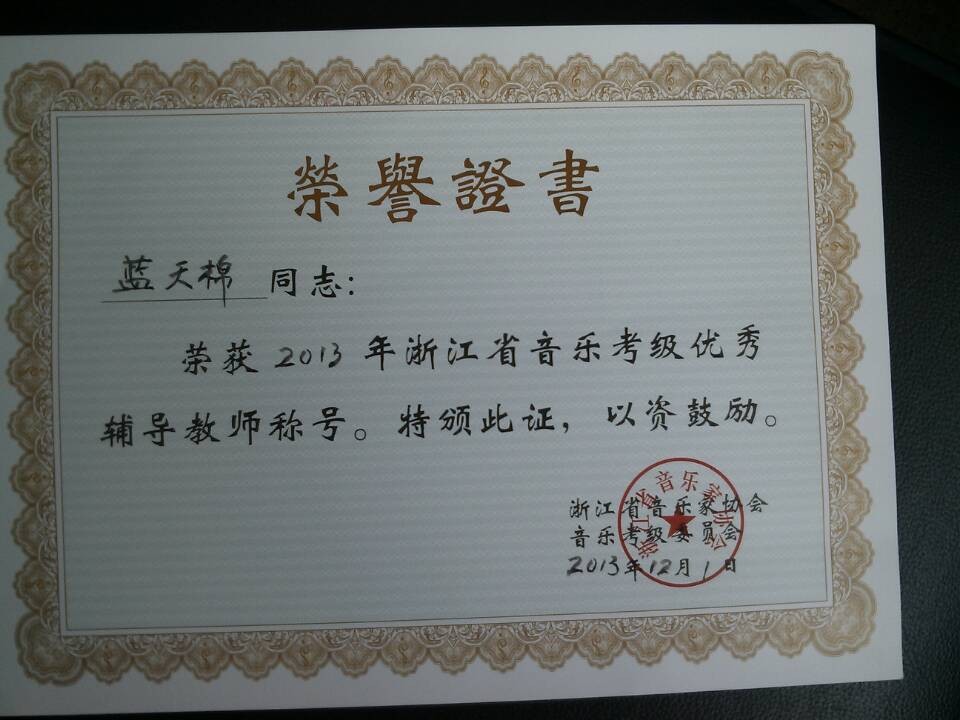 榮譽證書
蓝天棉 同志:
荣获2013年浙江省音乐考级优秀
辅导教师称号。特颁此证,以资鼓励。
浙江省音乐家协会
音乐考级委员会
2013年12月1日
浙江省音乐家协会